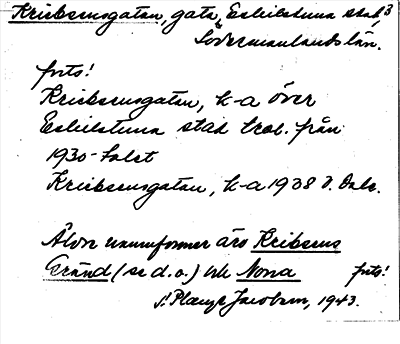 Kriebsensgatan, gata, Eskilstuna stad, 3
Södermanlands län.
forts!
Kriebsensgatan, k-a över
Eskilstuna stad trol. från
1930-talet
Kriebsensgatan, k-a 1938 J. Dahl.
Äldre namnformer äro Kribsens
Gränd (se d.o.) och Norra forts!
S. Plange Jacobson, 1943.